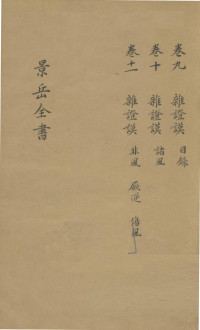 卷九 雜證謨 目錄
卷十 雜證謨 諸風
卷十一 雜證謨 非風 厥逆 傷風
景岳全書